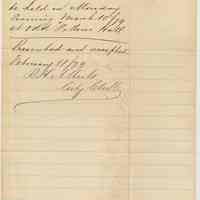 be held on Monday
Evening March 10/79
at Odd Fellows Hall.
Presented and accepted
February 11/79
City Clerk